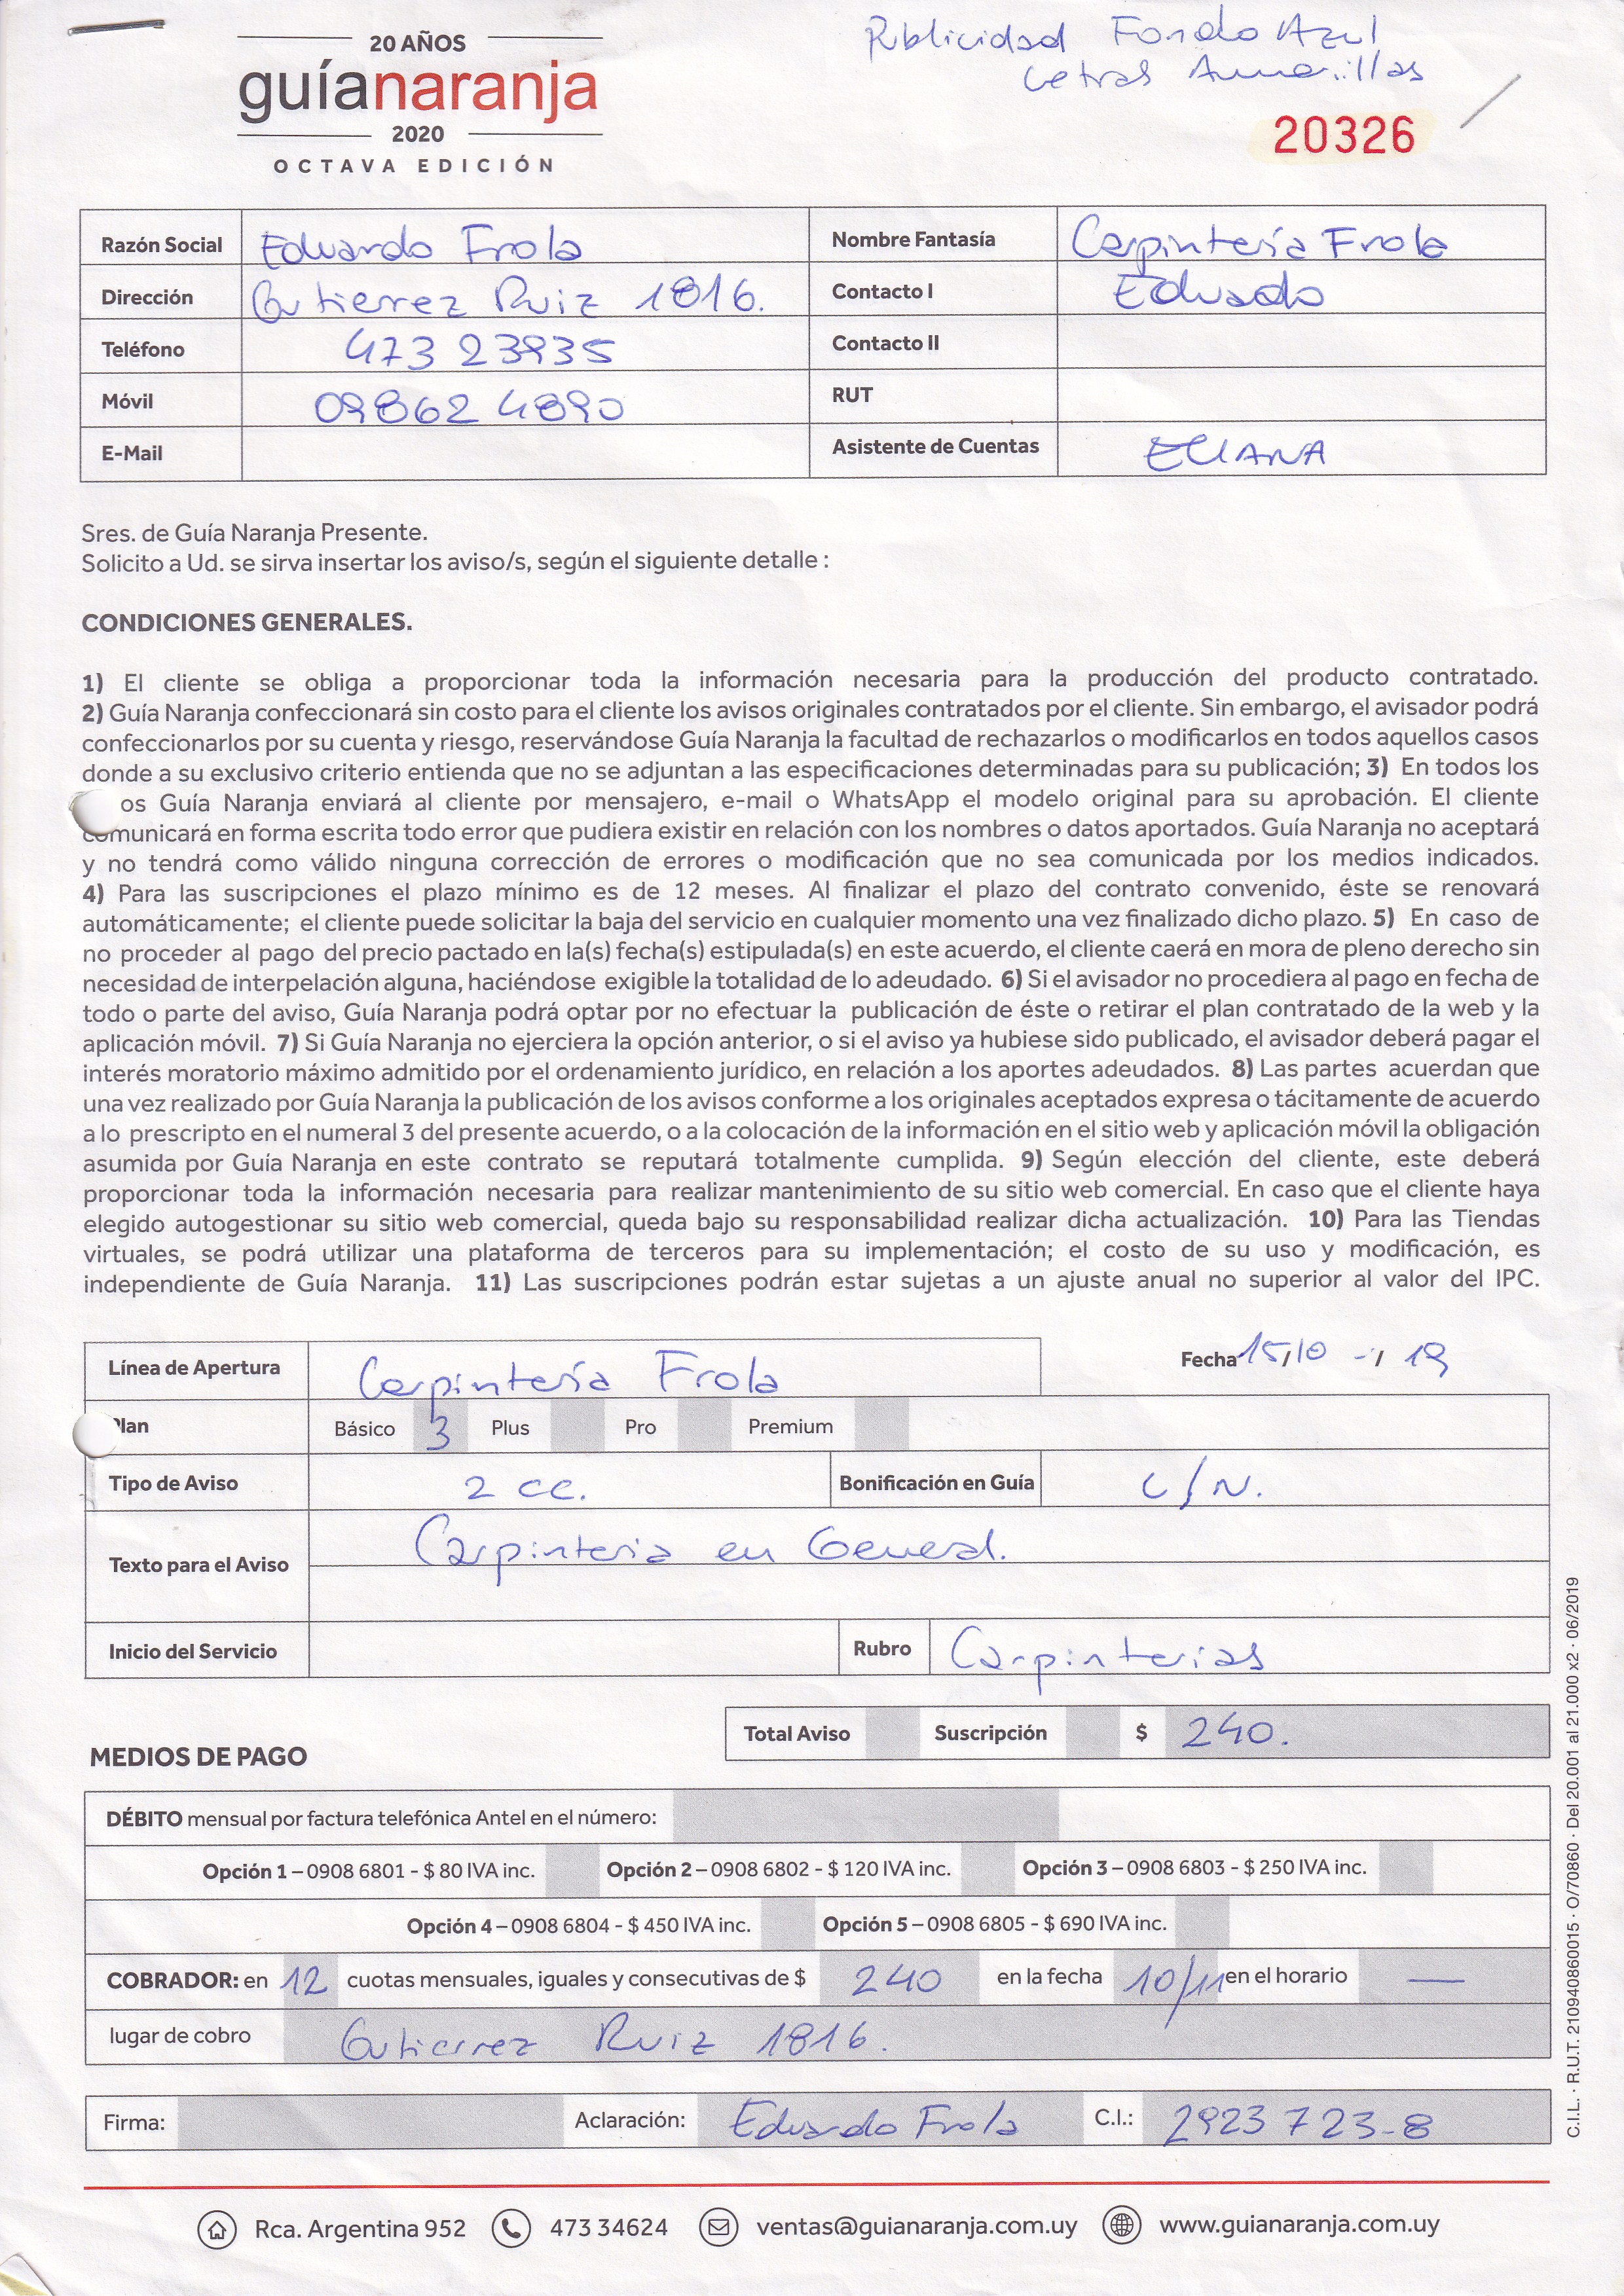 Publicidad Fondo Azul
Letras Amarillas
20 AÑOS
guíanaranja
2020
OCTAVA EDICIÓN
20326
Razón Social Eduardo Frola Nombre Fantasía Carpintería Frola
Dirección Gutierrez Ruiz 1816. Contacto I Eduardo
Teléfono 473 23935 Contacto II
Móvil 09862 4890 RUT
E-Mail Asistente de Cuentas ELIANA
Sres. de Guía Naranja Presente.
Solicito a Ud. se sirva insertar los aviso/s, según el siguiente detalle :
CONDICIONES GENERALES.
1) El cliente se obliga a proporcionar toda la información necesaria para la producción del producto contratado.
2) Guía Naranja confeccionará sin costo para el cliente los avisos originales contratados por el cliente. Sin embargo, el avisador podrá
confeccionarlos por su cuenta y riesgo, reservándose Guía Naranja la facultad de rechazarlos o modificarlos en todos aquellos casos
donde a su exclusivo criterio entienda que no se adjuntan a las especificaciones determinadas para su publicación; 3) En todos los
os Guía Naranja enviará al cliente por mensajero, e-mail o WhatsApp el modelo original para su aprobación. El cliente
comunicará en forma escrita todo error que pudiera existir en relación con los nombres o datos aportados. Guía Naranja no aceptará
y no tendrá como válido ninguna corrección de errores o modificación que no sea comunicada por los medios indicados.
4) Para las suscripciones el plazo mínimo es de 12 meses. Al finalizar el plazo del contrato convenido, éste se renovará
automáticamente; el cliente puede solicitar la baja del servicio en cualquier momento una vez finalizado dicho plazo. 5) En caso de
no proceder al pago del precio pactado en la(s) fecha(s) estipulada(s) en este acuerdo, el cliente caerá en mora de pleno derecho sin
necesidad de interpelación alguna, haciéndose exigible la totalidad de lo adeudado. 6) Si el avisador no procediera al pago en fecha de
todo o parte del aviso, Guía Naranja podrá optar por no efectuar la publicación de éste o retirar el plan contratado de la web y la
aplicación móvil. 7) Si Guía Naranja no ejerciera la opción anterior, o si el aviso ya hubiese sido publicado, el avisador deberá pagar el
interés moratorio máximo admitido por el ordenamiento jurídico, en relación a los aportes adeudados. 8) Las partes acuerdan que
una vez realizado por Guía Naranja la publicación de los avisos conforme a los originales aceptados expresa o tácitamente de acuerdo
a lo prescripto en el numeral 3 del presente acuerdo, o a la colocación de la información en el sitio web y aplicación móvil la obligación
asumida por Guía Naranja en este contrato se reputará totalmente cumplida. 9) Según elección del cliente, este deberá
proporcionar toda la información necesaria para realizar mantenimiento de su sitio web comercial. En caso que el cliente haya
elegido autogestionar su sitio web comercial, queda bajo su responsabilidad realizar dicha actualización. 10) Para las Tiendas
virtuales, se podrá utilizar una plataforma de terceros para su implementación; el costo de su uso y modificación, es
independiente de Guía Naranja. 11) Las suscripciones podrán estar sujetas a un ajuste anual no superior al valor del IPC.
Línea de Apertura Carpintería Frola Fecha 15/10 -/ 19
Plan Básico 3 Plus Pro Premium
Tipo de Aviso 2 cc. Bonificación en Guía C/N.
Texto para el Aviso Carpinteria en General.
Inicio del Servicio Rubro Carpinterias
Total Aviso Suscripción $ 240.
MEDIOS DE PAGO
DÉBITO mensual por factura telefónica Antel en el número:
Opción 1 – 0908 6801 - $ 80 IVA inc. Opción 2 – 0908 6802 - $ 120 IVA inc. Opción 3 – 0908 6803 - $ 250 IVA inc.
Opción 4 – 0908 6804 - $ 450 IVA inc. Opción 5 – 0908 6805 - $ 690 IVA inc.
COBRADOR: en 12 cuotas mensuales, iguales y consecutivas de $ 240 en la fecha 10/11 en el horario —
lugar de cobro Gutierrez Ruiz 1816.
Firma: Aclaración: Eduardo Frola C.I.: 2923 723-8
Rca. Argentina 952 473 34624 ventas@guianaranja.com.uy www.guianaranja.com.uy
C.I.L. · R.U.T. 210940860015 · O/70860 · Del 20.001 al 21.000 x2 · 06/2019